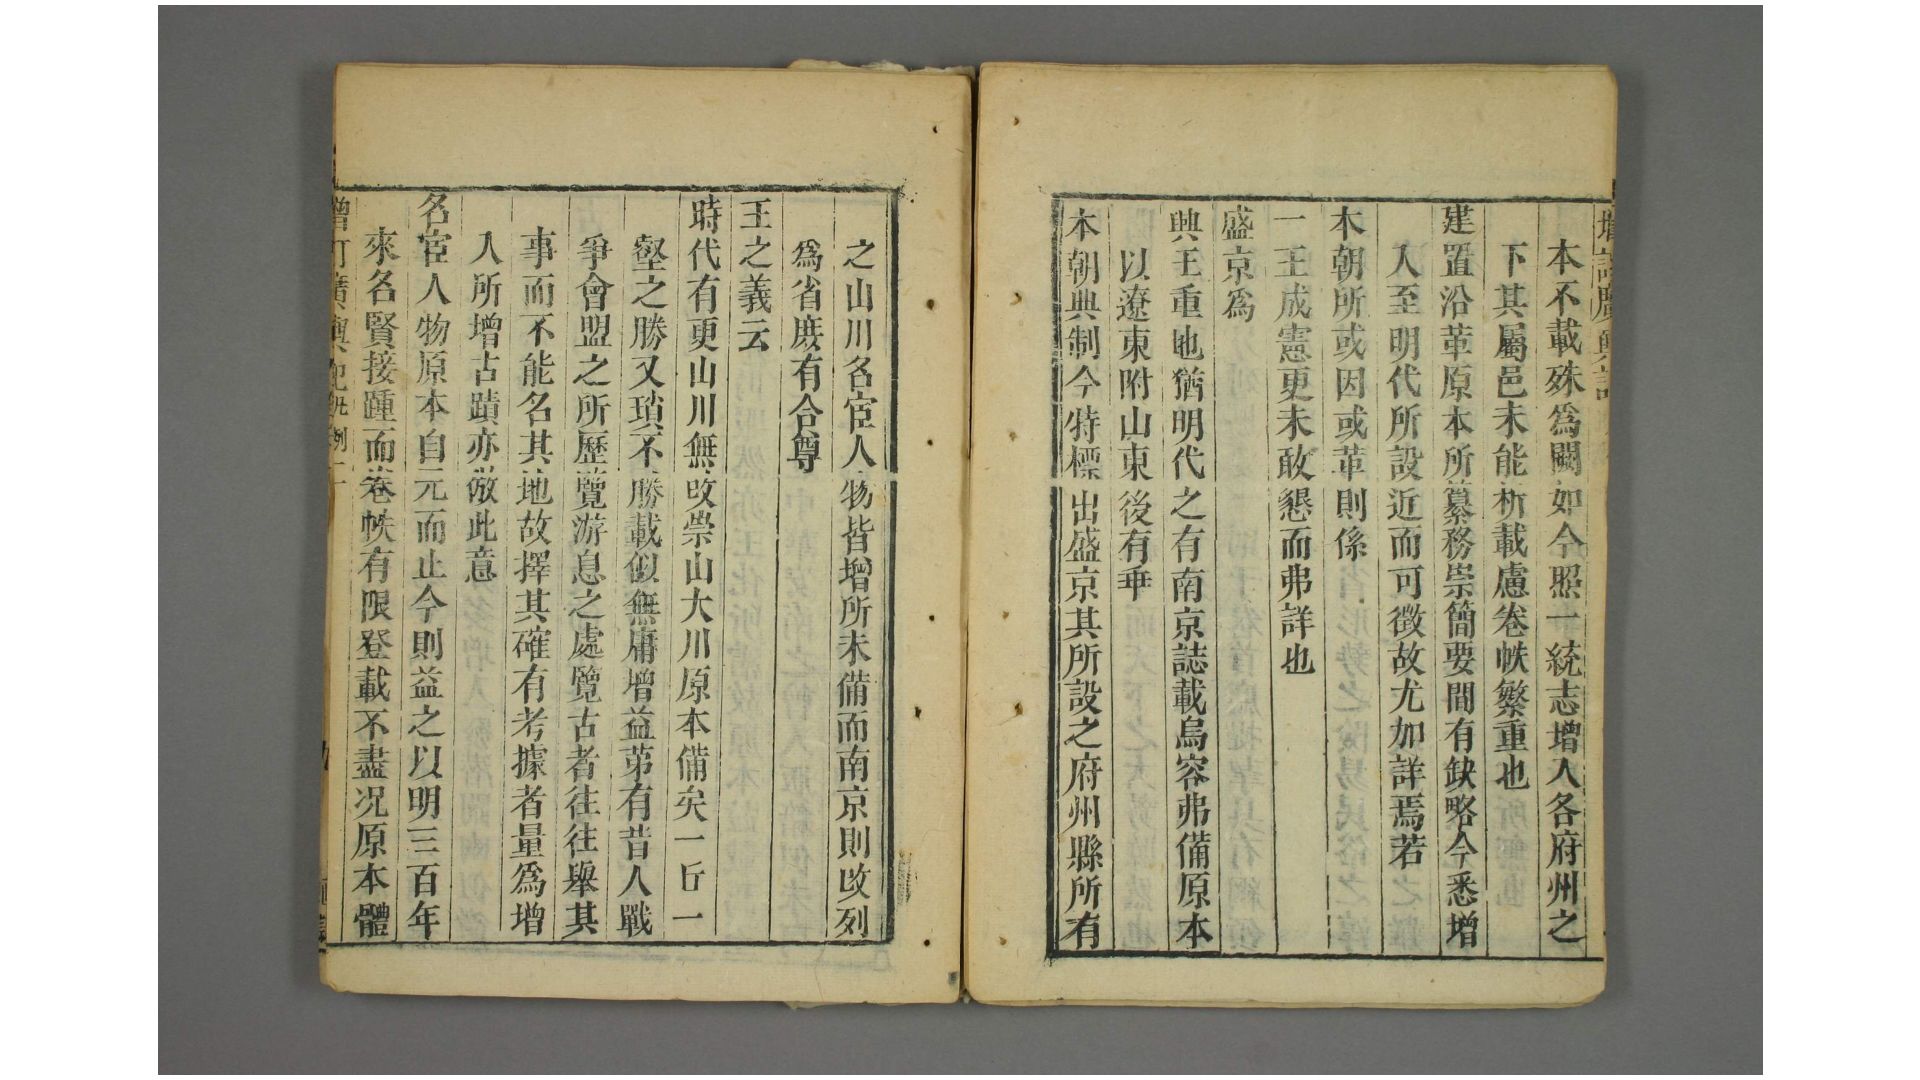 本不載殊為闕如今照一統志增入各府州之
下其屬邑未能析載慮卷帙繁重也
建置沿革原本所纂務崇簡要間有缺略今悉增
入至明代所設近而可徵故尤加詳焉若
本朝所或因或革則係
一王成憲更未敢懇而弗詳也
盛京爲
興王重地猶明代之有南京誌載烏容弗備原本
以遼東附山東後有乖
本朝典制今特標出盛京其所設之府州縣所有
之山川名宦人物皆增所未備而南京則改列
爲省庶有合尊
王之義云
時代有更山川無改崇山大川原本備矣一丘一
壑之勝又瑣不勝載似無庸增益第有昔人戰
爭會盟之所歷覽游息之處覽古者往往舉其
事而不能名其地故擇其確有考據者量爲增
入所增古蹟亦倣此意
名宦人物原本自元而止今則益之以明三百年
來名賢接踵而卷帙有限登載不盡况原本體
增訂廣輿記凡例二